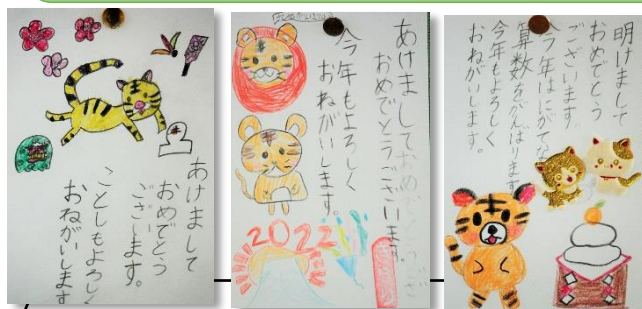 あけまして
おめでとう
ございます。
ことしもよろしく
おねがいします
あけまして
おめでとうございます。
今年もよろしく
おねがいします。
2022
明けまして
おめでとう
ございます。
今年はにがてな
算数をがんばります
今年もよろしく
おねがいします。